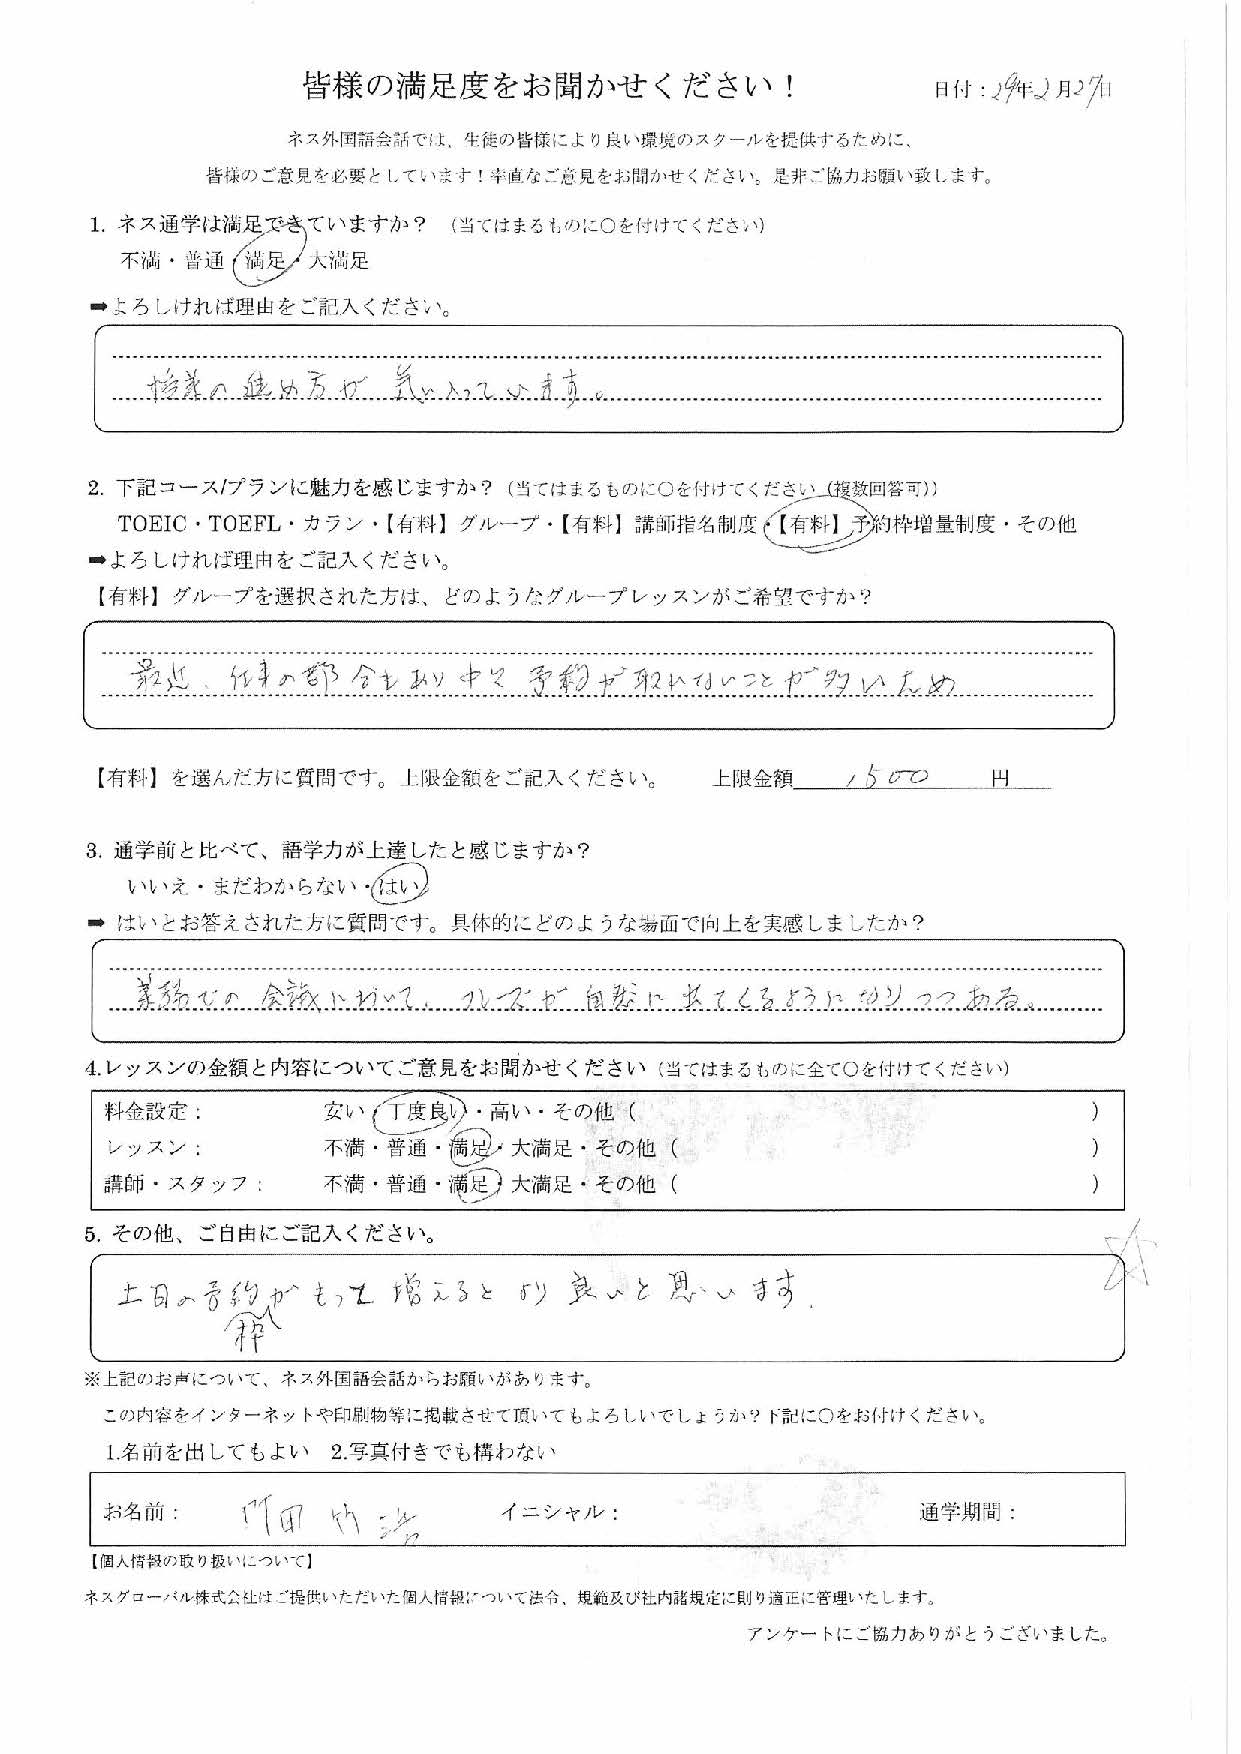 皆様の満足度をお聞かせください！
日付：29年2月27日
ネス外国語会話では、生徒の皆様により良い環境のスクールを提供するために、
皆様のご意見を必要としています！率直なご意見をお聞かせください。是非ご協力お願い致します。
1. ネス通学は満足できていますか？（当てはまるものに〇を付けてください）
不満・普通・満足・大満足
➡よろしければ理由をご記入ください。
授業の進め方が気に入っています。
2. 下記コース/プランに魅力を感じますか？（当てはまるものに〇を付けてください（複数回答可））
TOEIC・TOEFL・カラン・【有料】グループ・【有料】講師指名制度・【有料】予約枠増量制度・その他
➡よろしければ理由をご記入ください。
【有料】グループを選択された方は、どのようなグループレッスンがご希望ですか？
最近、仕事の都合もあり中々予約が取れないことが多いため
【有料】を選んだ方に質問です。上限金額をご記入ください。 上限金額 1500 円
3. 通学前と比べて、語学力が上達したと感じますか？
いいえ・まだわからない・はい
➡ はいとお答えされた方に質問です。具体的にどのような場面で向上を実感しましたか？
業務での会議において、フレーズが自然に出てくるようになりつつある。
4.レッスンの金額と内容についてご意見をお聞かせください（当てはまるものに全て〇を付けてください）
料金設定： 安い・丁度良い・高い・その他（ ）
レッスン： 不満・普通・満足・大満足・その他（ ）
講師・スタッフ： 不満・普通・満足・大満足・その他（ ）
5. その他、ご自由にご記入ください。
土日の予約枠がもっと増えるとより良いと思います.
※上記のお声について、ネス外国語会話からお願いがあります。
この内容をインターネットや印刷物等に掲載させて頂いてもよろしいでしょうか？下記に〇をお付けください。
1.名前を出してもよい 2.写真付きでも構わない
お名前： イニシャル： 通学期間：
【個人情報の取り扱いについて】
ネスグローバル株式会社はご提供いただいた個人情報について法令、規範及び社内諸規定に則り適正に管理いたします。
アンケートにご協力ありがとうございました。